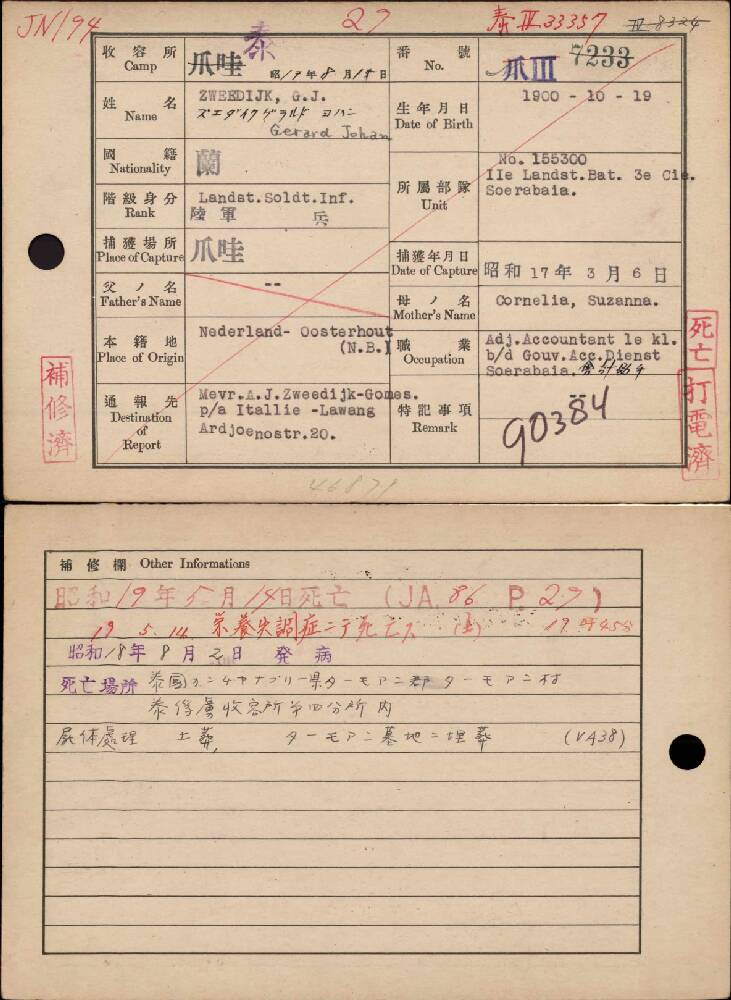 JN/194
27
泰III 33357
IV-8324
收容所 Camp
爪哇 泰
昭19年8月15日
番號 No.
爪III 7233
姓名 Name
ZWEEDIJK, G.J.
ズエダイク ゲラルド ヨハン
Gerard Johan
生年月日 Date of Birth
1900 - 10 - 19
國籍 Nationality
蘭
所屬部隊 Unit
No. 155300
IIe Landst.Bat. 3e Cie.
Soerabaia.
階級身分 Rank
Landst.Soldt.Inf.
陸軍 兵
捕獲場所 Place of Capture
爪哇
捕獲年月日 Date of Capture
昭和 17年 3月6日
父ノ名 Father's Name
--
母ノ名 Mother's Name
Cornelia, Suzanna.
本籍地 Place of Origin
Nederland- Oosterhout
(N.B.)
職業 Occupation
Adj.Accountant 1e kl.
b/d Gouv.Acc.Dienst
Soerabaia.
通報先 Destination of Report
Mevr.A.J.Zweedijk-Gomes.
p/a Itallie -Lawang
Ardjoenostr.20.
特記事項 Remark
90384
補修濟
死亡
打電濟
46871
補修欄 Other Informations
昭和19年5月14日死亡 (JA. 86 P 27)
19. 5. 14. 栄養失調症ニテ死亡ス
昭和18年8月2日 発病
死亡場所 泰国カンチヤナブリー県ターモアン郡ターモアン村
泰俘虜收容所第四分所内
屍体處理 土葬, ターモアン墓地ニ埋葬 (VA38)